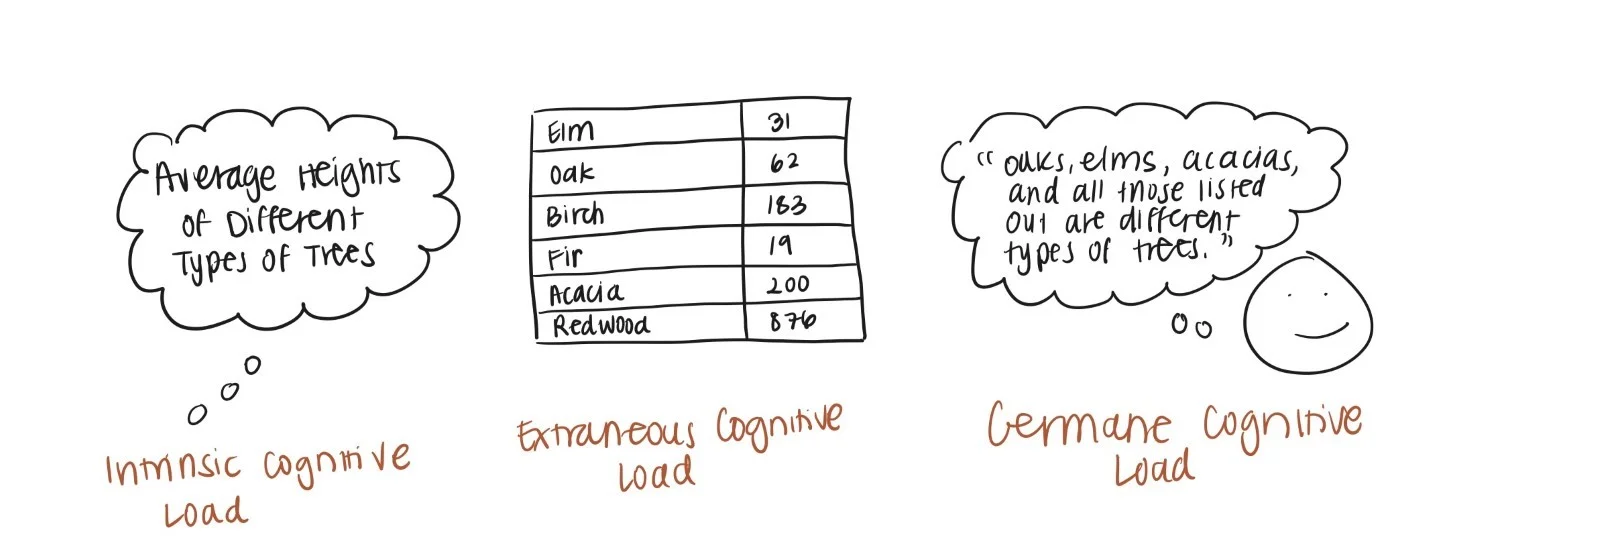 Average Heights
of Different
Types of Trees
Intrinsic Cognitive
Load
Elm 31
Oak 62
Birch 183
Fir 19
Acacia 200
Redwood 876
Extraneous Cognitive
Load
“oaks, elms, acacias,
and all those listed
out are different
types of trees.”
Germane Cognitive
Load